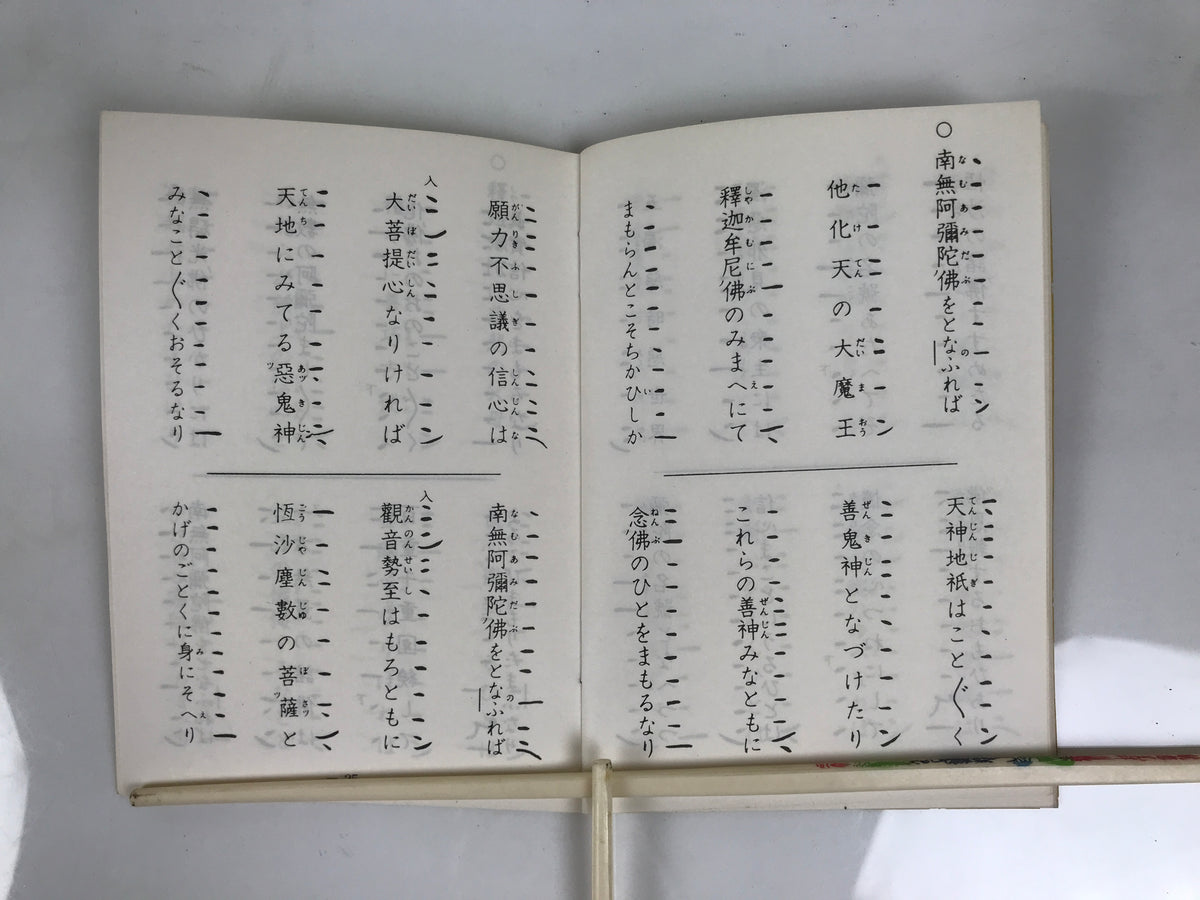 ○南無阿彌陀佛をとなふれば
他化天の大魔王
釋迦牟尼佛のみまへにて
まもらんとこそちかひしか
天神地祇はことぐ〱く
善鬼神となづけたり
これらの善神みなともに
念佛のひとをまもるなり
願力不思議の信心は
大菩提心なりければ
天地にみてる惡鬼神
みなことぐ〱くおそるなり
南無阿彌陀佛をとなふれば
觀音勢至はもろともに
恆沙塵數の菩薩と
かげのごとくに身にそへり